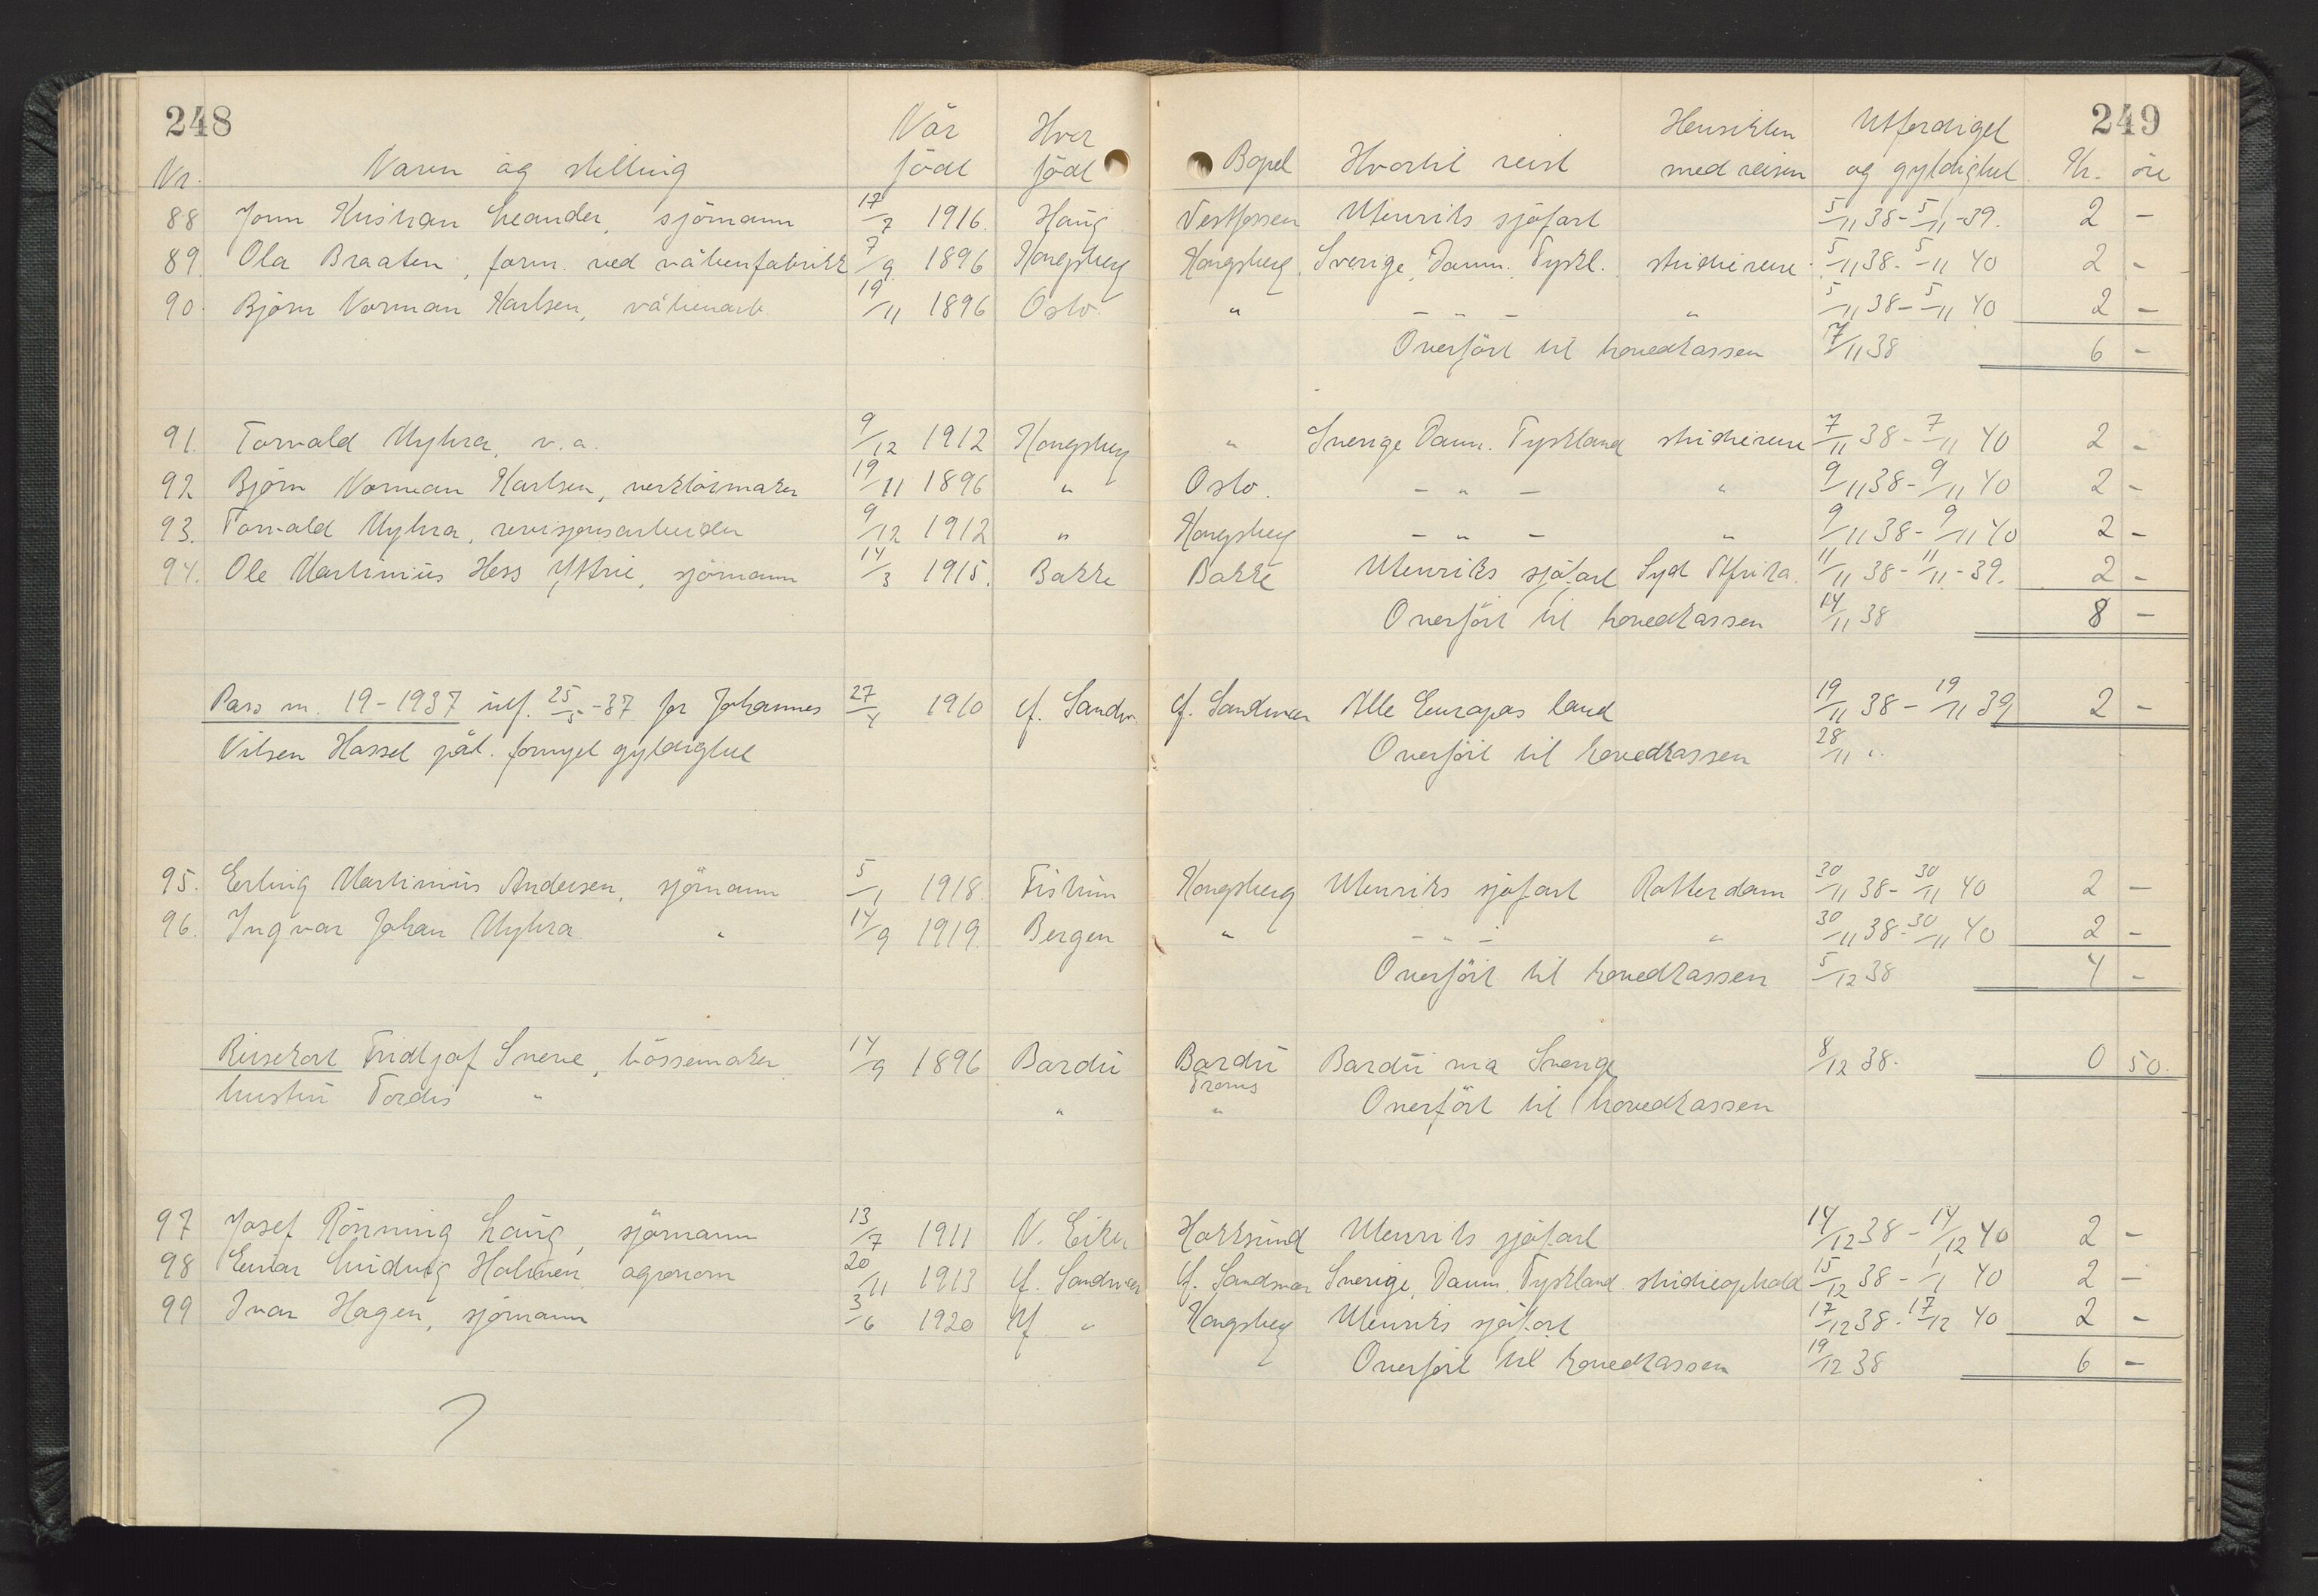 248
249
Når Hvor Hensikten Utferdiget
Nr. Navn og stilling født født Bopel Hvortil reist med reisen og gyldighet Kr. öre
88 Jonn Kristian Leander, sjömann 17/7 1916. Haug Vestfossen Utenriks sjöfart 5/11 38 - 5/11 -39. 2 -
89. Ola Braaten, form. ved våbenfabrikk 7/9 1896 Kongsberg Kongsberg Sverige, Danm. Tyskl. studiereise 5/11 38 - 5/11 40 2 -
90. Björn Norman Karlsen, våbenarb. 19/11 1896 Oslo. " - " - " 5/11 38 - 5/11 40 2 -
Overfört til hovedkassen 7/11 38 6 -
91. Torvald Myhra, v.a. 9/12 1912 Kongsberg " Sverige Danm. Tyskland studiereise 7/11 38 - 7/11 40 2 -
92 Björn Norman Karlsen, verktöimaker 19/11 1896 " Oslo. - " - " 9/11 38 - 9/11 40 2 -
93. Torvald Myhra, revisjonsarbeider 9/12 1912 " Kongsberg - " - " 9/11 38 - 9/11 40 2 -
94. Ole Martinius Hess Yttrie, sjömann 14/3 1915. Bakke Bakke Utenriks sjöfart Syd Afrika. 11/11 38 - 11/11 - 39. 2 -
Overfört til hovedkassen 14/11 38 8 -
Pass nr. 19 - 1937 utf. 25/5 -37 for Johannes 27/4 1910 Ø. Sandsv. Ø. Sandsvær Alle Europas land 19/11 38 - 19/11 39 2 -
Nilsen Hassel påt. fornyet gyldighet Overfört til hovedkassen 28/11 "
95. Erling Martinius Andersen, sjömann 5/1 1918. Fiskum Kongsberg Utenriks sjöfart Rotterdam 30/11 38 - 30/11 40 2 -
96. Ingvar Johan Myhra " 14/9 1919 Bergen " - " - " 30/11 38 - 30/11 40 2 -
Overfört til hovedkassen 5/12 38 4 -
Reisekort Fridtjof Sneve, bössemaker 14/9 1896 Bardu Bardu Bardu via Sverige 8/12 38. 0 50.
Troms
hustru Tordis " " " Overfört til hovedkassen
97 Josef Rönning Haug, sjömann 13/7 1911 N. Eiker Hokksund Utenriks sjöfart 14/12 38 - 14/12 40 2 -
98 Einar Ludvig Holmen, agronom 20/11 1913 Ø. Sandsvær Ø. Sandsvær Sverige, Danm. Tyskland studieophold 15/12 38 - 1/1 40 2 -
99 Ivar Hagen, sjömann 3/6 1920 Yt. " Kongsberg Utenriks sjöfart 17/12 38 - 17/12 40 2 -
Overfört til hovedkassen 19/12 38 6 -